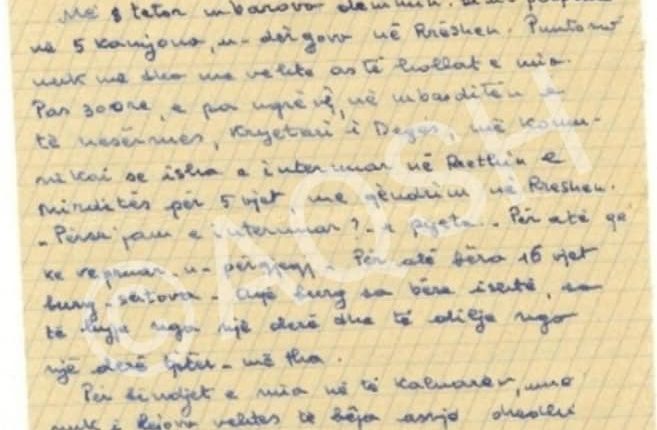 Më 8 tetor mbarova dënimin.
në 5 kamjona, u-dërgova në Rrëshen. Puntorë
nuk më dha me vehte as të hollat e mia.
Pas 30 orë, e pa ngrënë, në mbasditën e
të nesërmes, Kryetari i Degës, më komu-
nikoi se isha e internuar në Rrethin e
Mirditës për 5 vjet me qëndrim në Rrëshen.
- Përse jam e internuar? - e pyeta. - Për atë që
ke vepruar - u-përgjegj - Për atë bëra 16 vjet
burg - shtova - Ajo burg sa bëre ishtë, sa
të hyje nga një derë dhe të dilje nga
një derë tjetër - më tha.
Për bindjet e mia në të kaluarën, unë
nuk i lejova vehtes të bëja asnjë
©AQSH